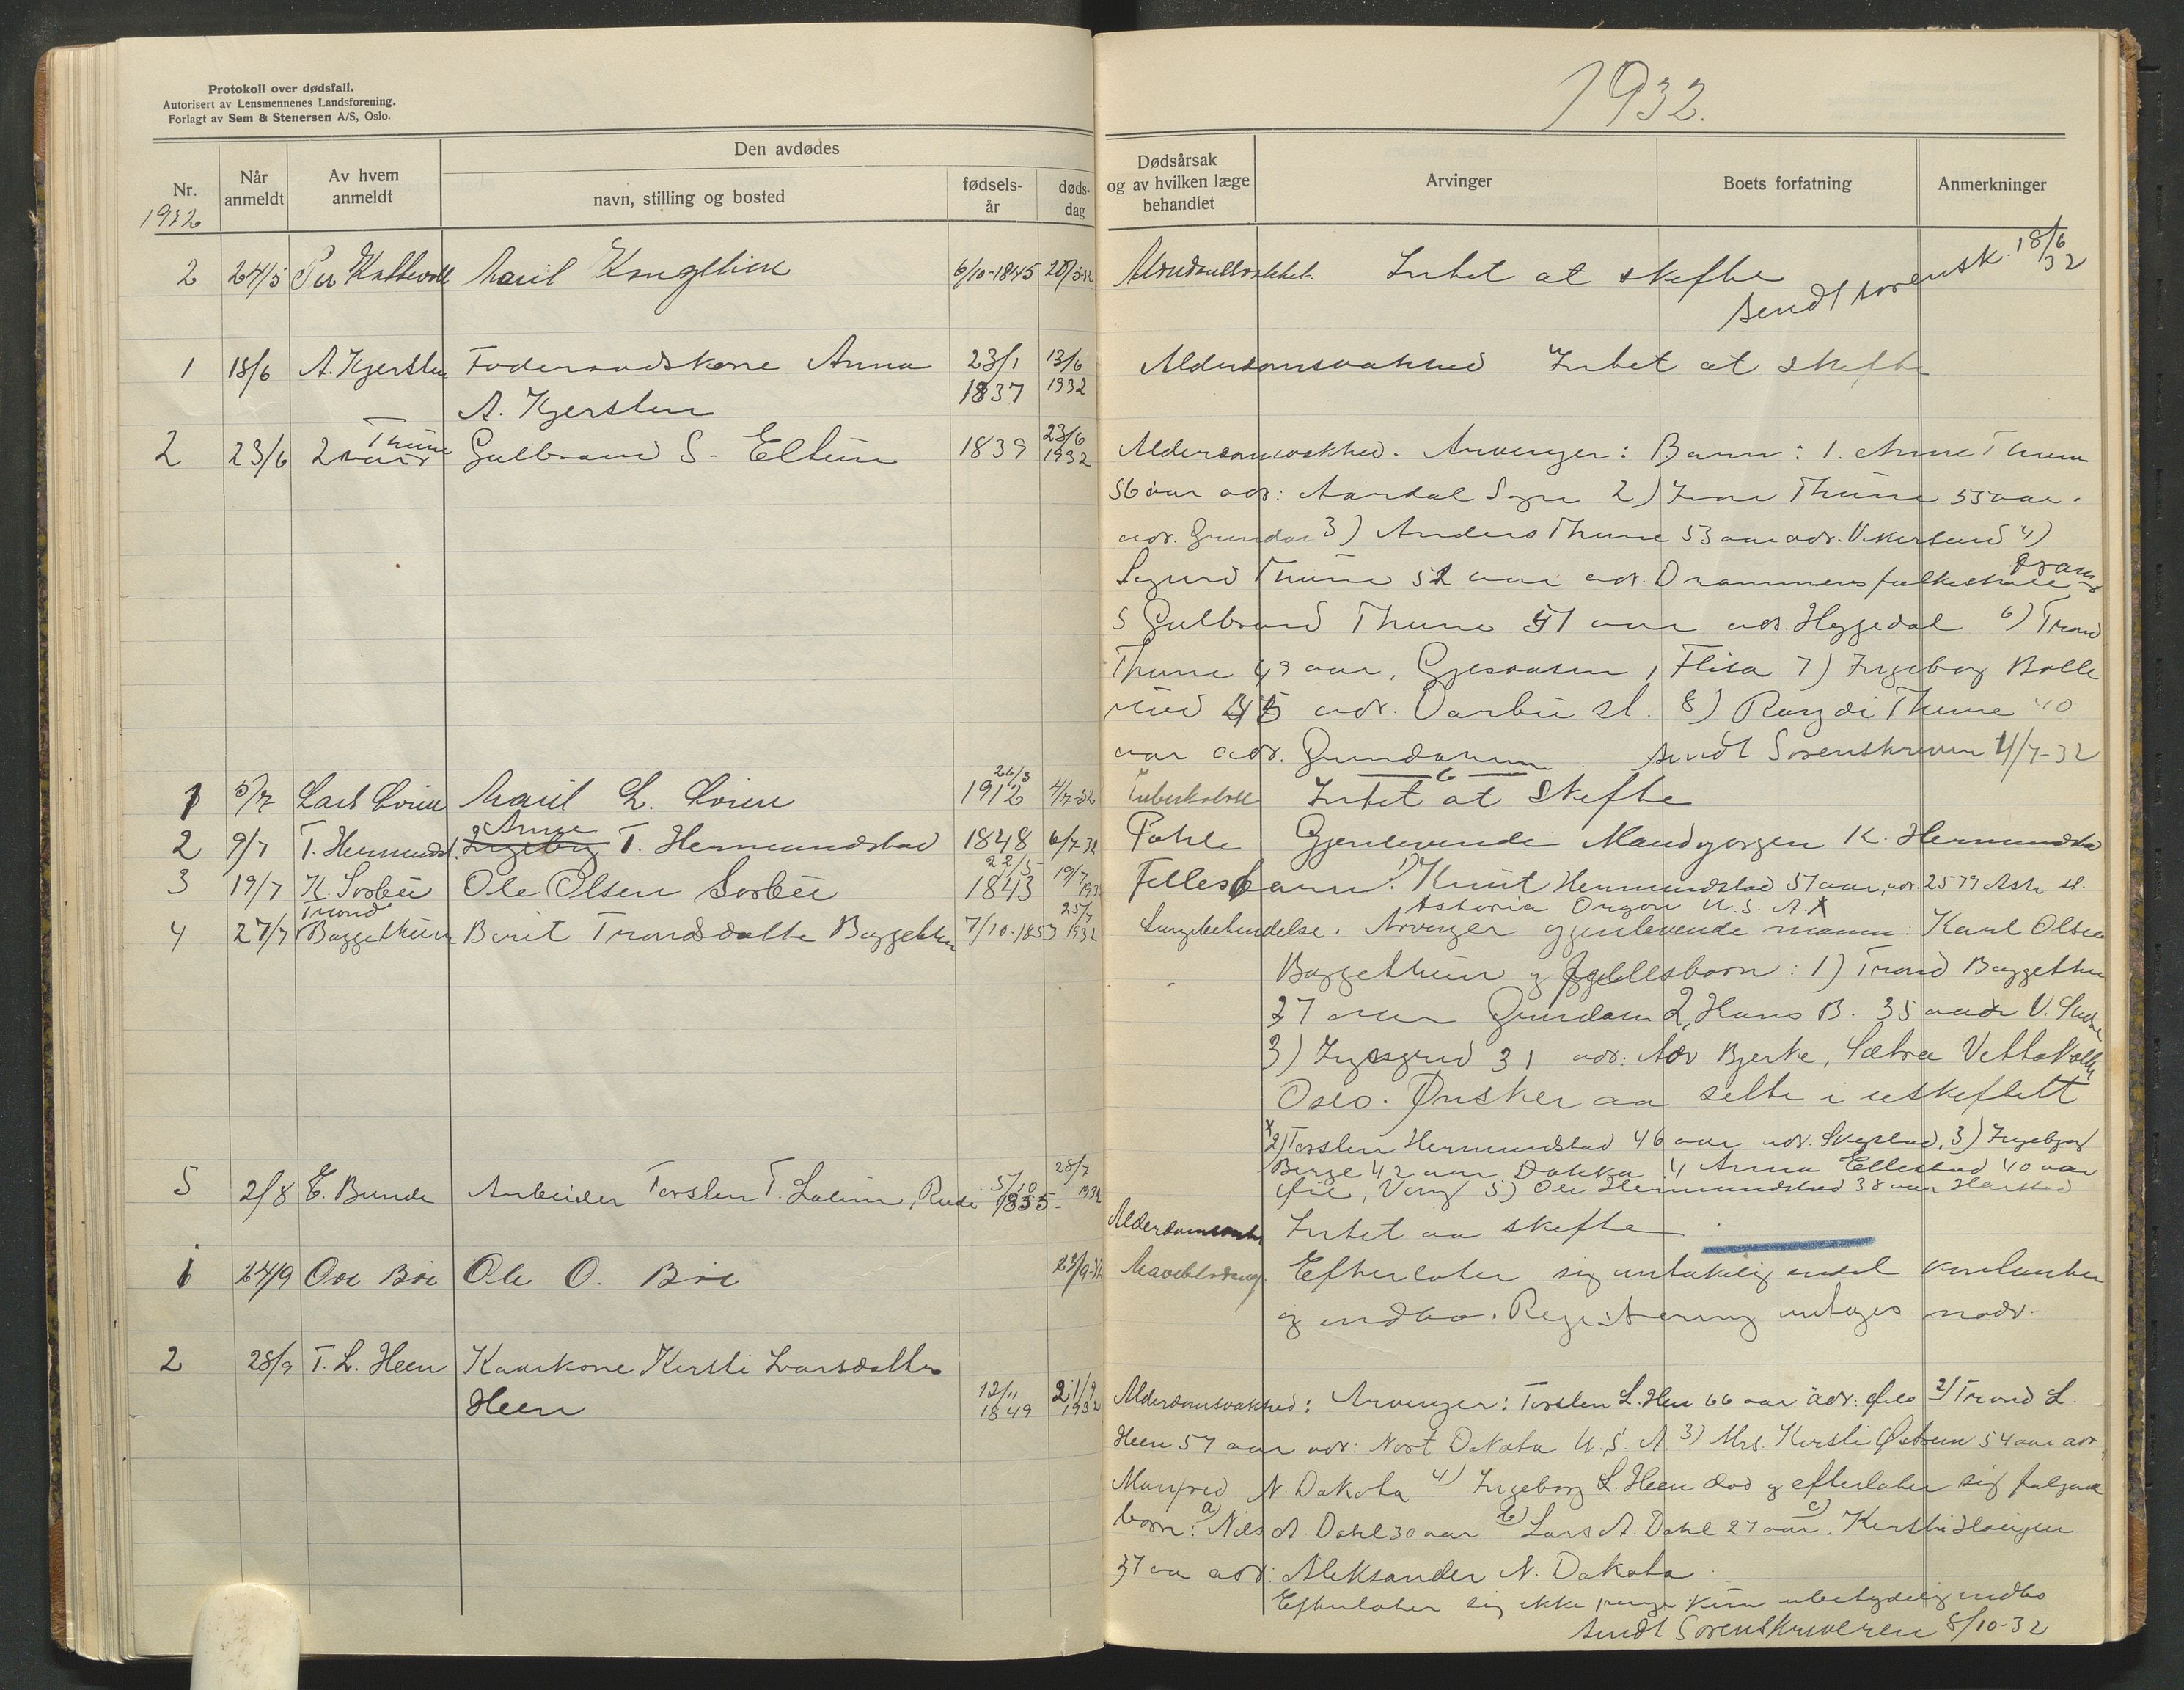 Protokoll over dødsfall.
Autorisert av Lensmennenes Landsforening.
Forlagt av Sem & Stenersen A/S, Oslo.
1932.
Nr.
1932
Når anmeldt
Av hvem anmeldt
Den avdødes
navn, stilling og bosted
fødsels-år
døds-dag
Dødsårsak og av hvilken læge behandlet
Arvinger
Boets forfatning
Anmerkninger
2 24/5 Per Marit 6/10-1845 Intet at skifte
sendt sorensk. 18/6 32
1 18/6 A. Kjerstein Foderaadskone Anna 23/1 13/6 Alderdomsvakhed Intet at skifte
A. Kjerstein 1837 1932
2 23/6 Ivar Thune Gulbrand S. Eltun 1839 23/6 1932 Alderdomsvakhed. Arvinger: Barn: 1. Anne Thune
56 aar adr: Aardal Sogn 2) Ivar Thune 55 aar.
adr. Grindar 3) Anders Thune 53 aar adr. Vikersund 4)
Sigurd Thune 52 aar adr. Drammens folkeskole
5 Gulbrand Thune 51 aar adr. Heggedal 6) Trond
Thune 49 aar, Gjesaasen, Flisa 7) Ingeborg Bolle
rud adr. Darbu st. 8) Ragdi Thune 40
aar adr. Grindarum sendt Sorenskriveren 4/7-32
1 5/7 Lars Loien Marit L. Loien 26/3 1912 4/7-32 Tuberkulose Intet at skifte
2 9/7 T. Hermundst. Anne T. Hermundstad 1848 6/7-32 Gjenlevende Mand K. Hermundsta
3 19/7 K. Sorbu Ole Olsen Sorbu 22/5 1843 19/7 1932 Fellesbarn: 1) Knut Hermundstad 51 aar, adr. 2579 Ash st.
Astoria Oregon U.S.A. X
4 27/7 Trond Baggethun Berit Trondsdatter Baggethun 7/10-1853 25/7 1932 Lungebetendelse. Arvinger gjenlevende mann: Karl Olsen
Baggethun og fellesbarn: 1) Trond Baggethun
37 aar Grindaen 2, Hans B. 35 aar V. Slidre
3) Ingegerd 31 adr: Adv. Bjerke, Sætra Vettakollen
Oslo. Ønsker aa sitte i uskiftett
x 2) Torsten Hermundstad 46 aar adr. Skeplad, 3) Ingebjørg
Berge 42 aar Dokka 4 Anna Ellestad 40 aar
Øie, Vang 5) Ole Hermundstad 38 aar Harstad
5 2/8 E. Bunde Arbeider Torsten T. Rudi 5/10 1855- 28/7 1932 Intet aa skifte
1 24/9 Ole Bøe Ole O. Bøe 23/9-32 Maveblødning Efterlater sig antakelig endel kontanter
og indbo. Registrering antages nødv.
2 28/9 T. L. Heen Kaarkone Kersti Ivarsdatter
Heen 12/11 1849 21/9 1932 Alderdomsvakhed: Arvinger: Torsten L. Heen 66 aar adr: Øilo 2) Trond L.
Heen 57 aar adr: Nort Dakota U.S.A. 3) Mrs. Kersti Østrem 54 aar adr.
N. Dakota 4) Ingeborg L. Heen død og efterlater sig følgende
barn: a) Nils A. Dahl 30 aar b) Lars A. Dahl 27 aar. c) Kersti Haugen
37 aar adr: Aleksander N. Dakota
Efterlater sig ikke penge kun ubetydelig indbo
sendt Sorenskriveren 8/10-32